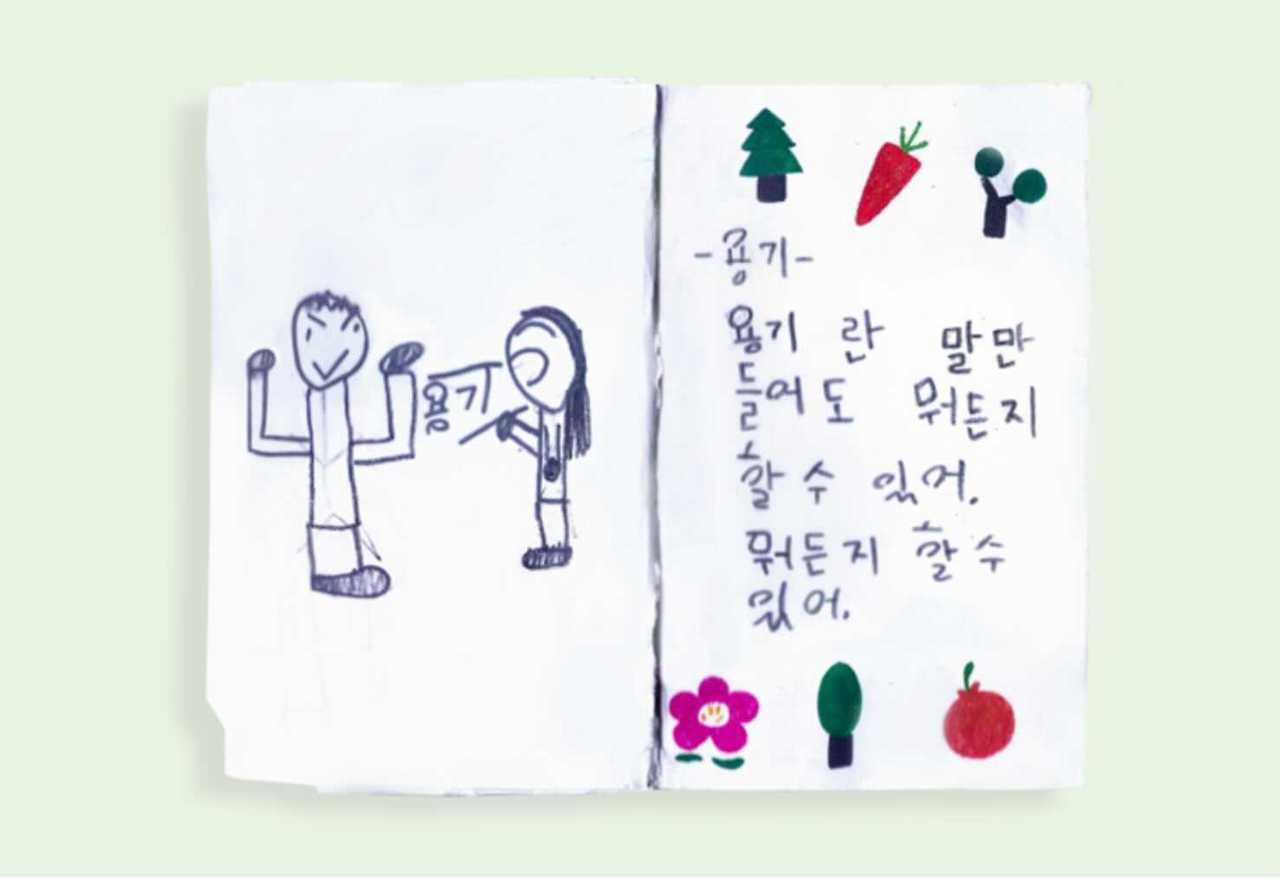 용기
-용기-
용기 란 말만
들어도 뭐든지
할 수 있어.
뭐든지 할 수
있어.